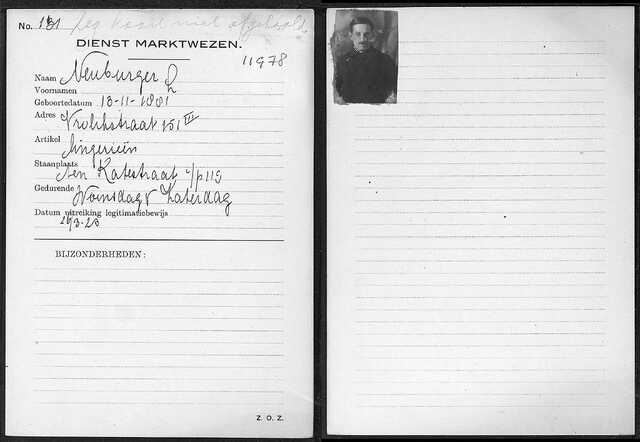 No. 131 Leg kaart niet afgehaald
DIENST MARKTWEZEN.
11978
Naam Neuburger
Voornamen L
Geboortedatum 13-11-1881
Adres Vrolikstraat 151 III
Artikel lingerieën
Staanplaats Ten Katestraat t/p 119
Gedurende Woensdag & Zaterdag
Datum uitreiking legitimatiebewijs
193-23
BIJZONDERHEDEN:
Z. O. Z.